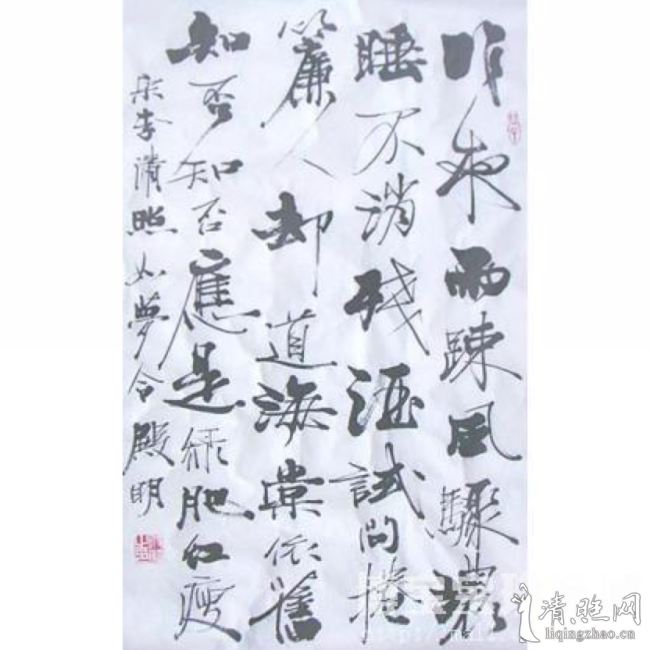 昨夜雨疎風驟濃
睡不消残酒試問捲
簾人却道海棠依舊
知否知否應是緑肥红瘦
宋李清照如夢令 殿明
清照网
liqingzhao.cn